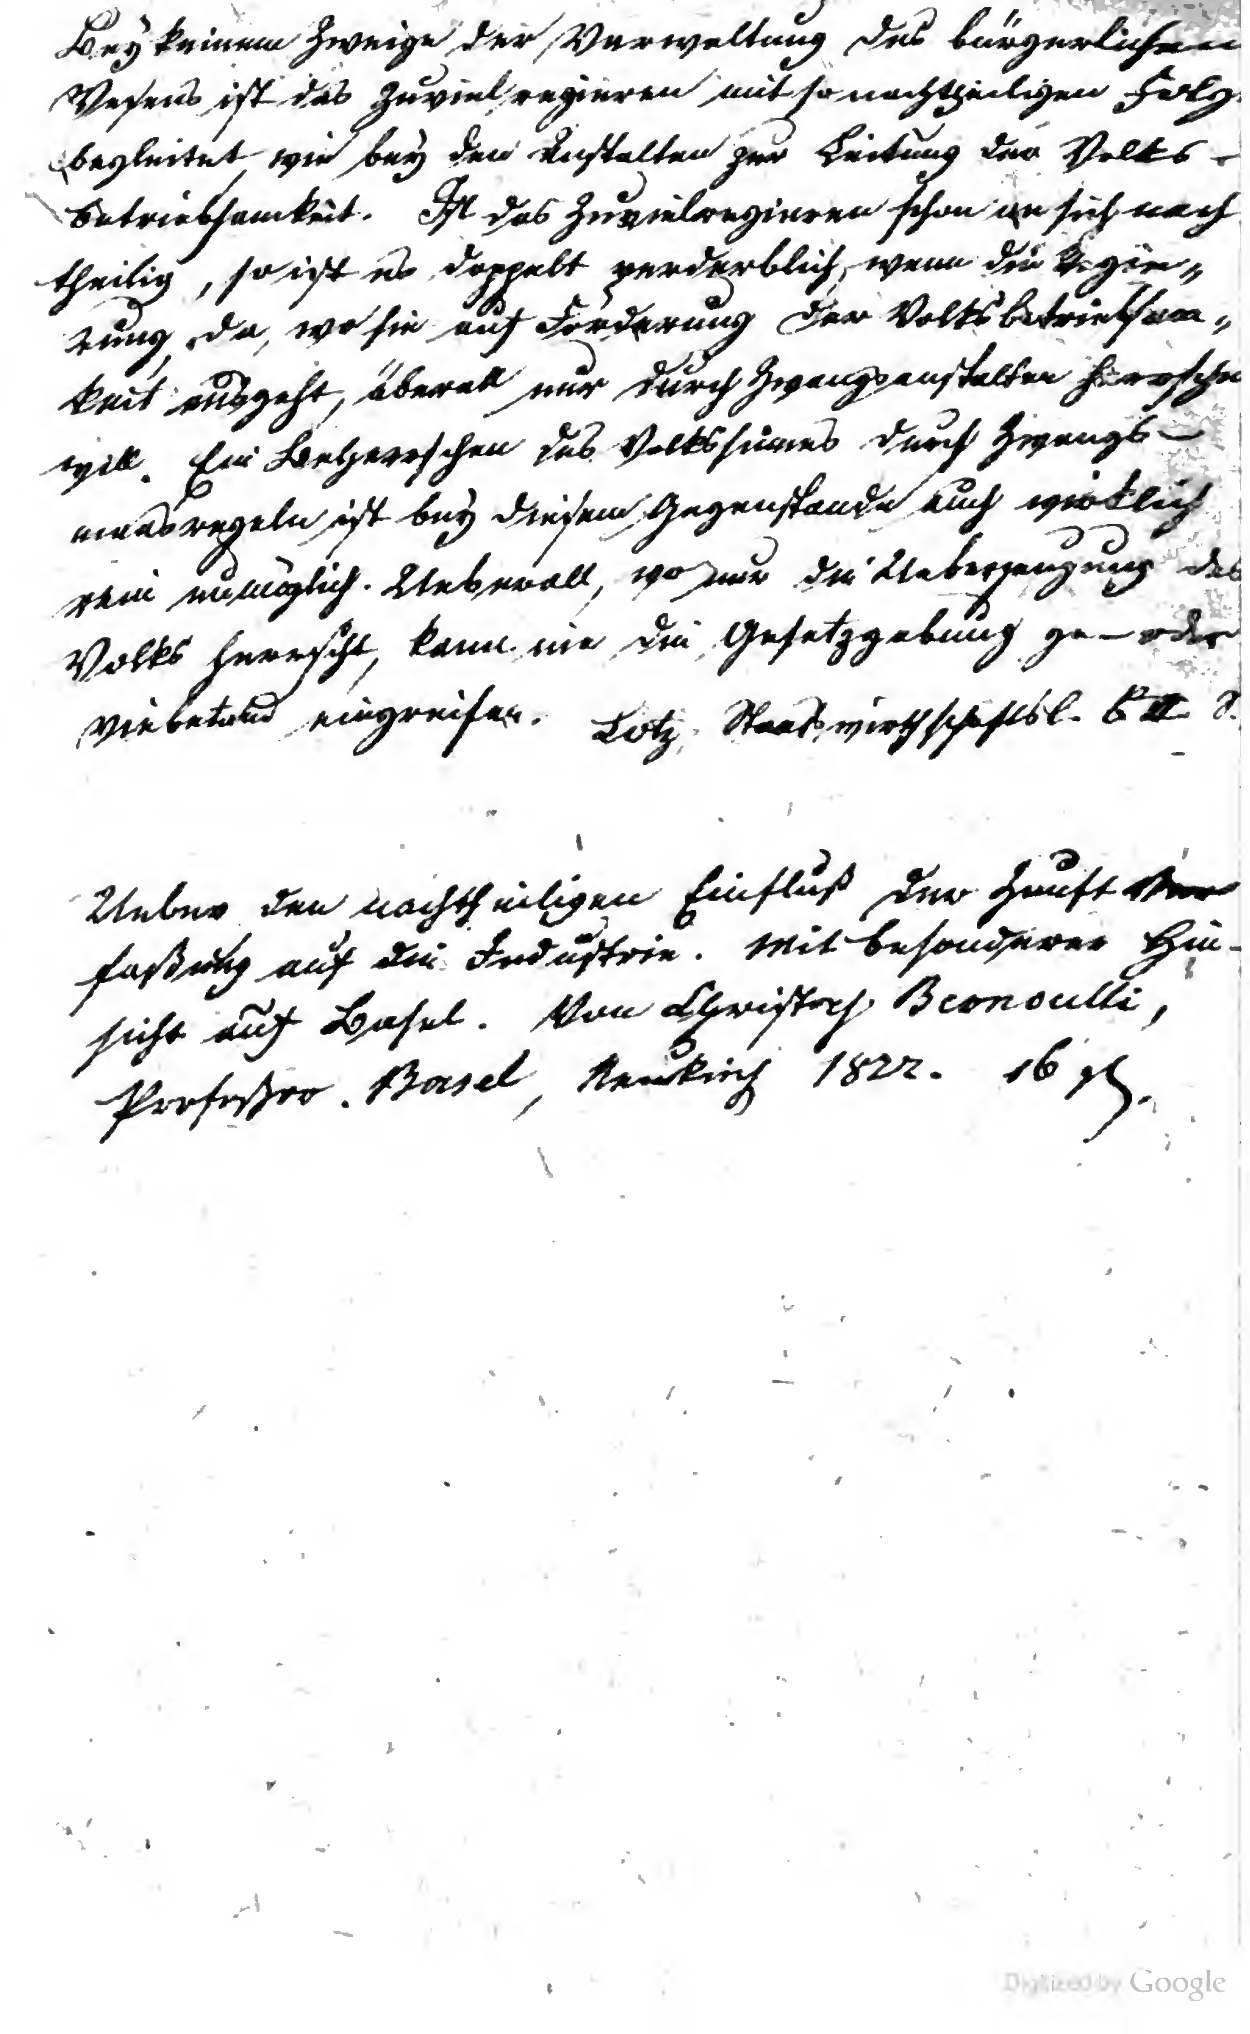 Bey keinem Zweige der Verwaltung des bürgerlichen
Wesens ist das Zuvielregieren mit so nachtheiligen Folg
begleitet, wie bey den Anstalten zur Leitung der Volks-
betriebsamkeit. Ist das Zuvielregieren schon an sich nach
theilig, so ist es doppelt verderblich, wenn die Regie„
rung, da, wo sie auf Förderung der Volksbetriebsam„
keit ausgeht, überall nur durch Zwangsanstalten herrschen
will. Ein Beherrschen des Volkssinnes durch Zwangs-
masregeln ist bey diesem Gegenstande auch wirklich
rein unmöglich. Ueberall, wo nur die Ueberzeugung des
Volks herrscht, kann nie die Gesetzgebung ge- oder
verbietend eingreifen. Lotz, Staatswirthschaftsl. B II S.
Ueber den nachtheiligen Einfluß der Zunft Ver
faßung auf die Industrie. Mit besonderer Hin-
sicht auf Basel. Von Christoph Bernoulli,
Profeßor. Basel, Neukirch 1822. 16
Digitized by Google